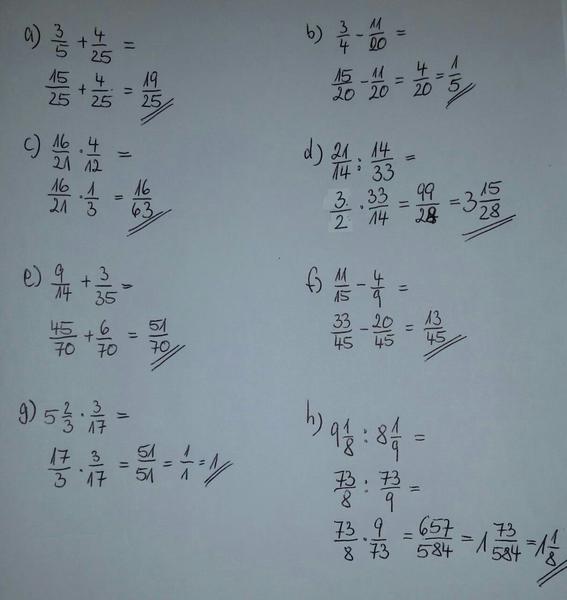 a) 3/5 + 4/25 =
15/25 + 4/25 = 19/25
b) 3/4 - 11/20 =
15/20 - 11/20 = 4/20 = 1/5
c) 16/21 · 4/12 =
16/21 · 1/3 = 16/63
d) 21/14 : 14/33 =
3/2 · 33/14 = 99/28 = 3 15/28
e) 9/14 + 3/35 =
45/70 + 6/70 = 51/70
f) 11/15 - 4/9 =
33/45 - 20/45 = 13/45
g) 5 2/3 · 3/17 =
17/3 · 3/17 = 51/51 = 1/1 = 1
h) 9 1/8 : 8 1/9 =
73/8 : 73/9 =
73/8 · 9/73 = 657/584 = 1 73/584 = 1 1/8